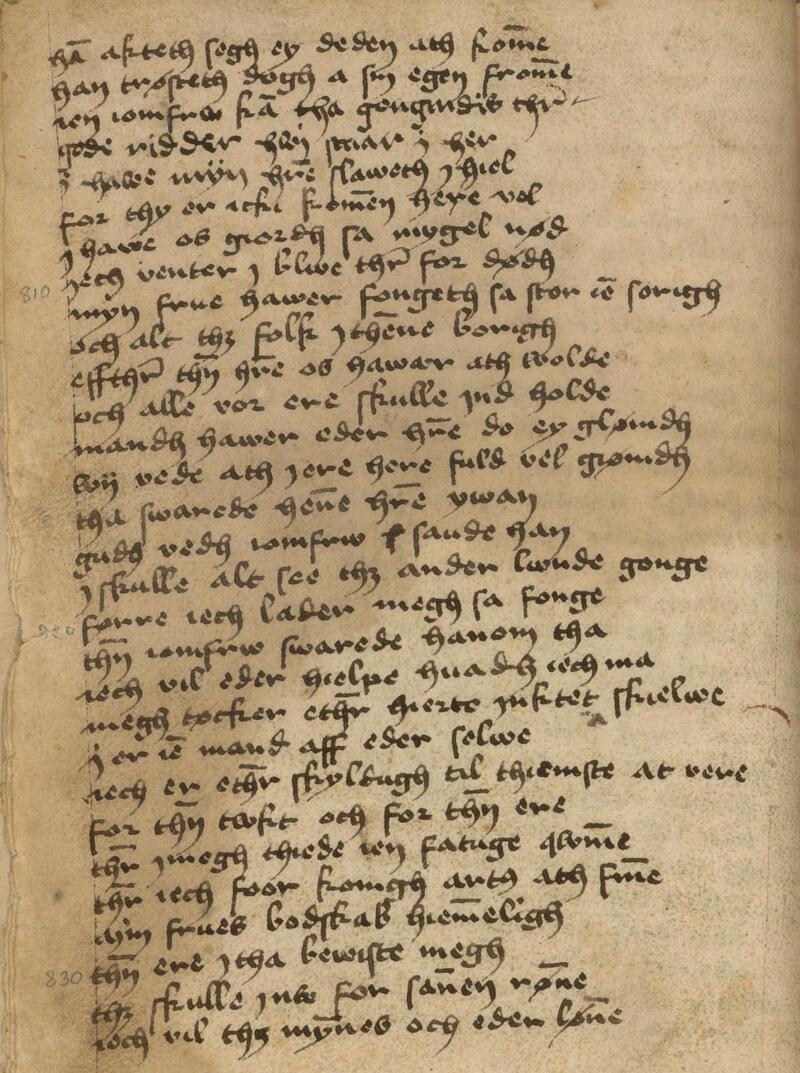 hā akteth segh ey deden ath kom̄e
han trøsteth dogh a sin egen from̄e
ien iomfrw kā tha gongindis thr̄
gode ridder hwi staar i her
i hawe myn hr̄e slaweth i hiel
for thy er icki komen here vel
i hawe os giordh sa mygel nød
iech venter i bliwe thr̄ for dødh
810 myn frue hawer fongeth sa stor iē sorigh
och alt thꝫ folk i thēne borigh
effthr̄ thn̄ hr̄e os hawar ath wolde
och alle vor ere skulle ind holde
mandh hawer eder hr̄e do ey glømdh
wij vede ath i ere here fuld vel giømdh
tha swarede hen̄e hr̄e ywan
gudh vedh iomfrw saude han
i skulle alt see thꝫ ander lwnde gonge
førre iech lader megh sa fonge
820 thn̄ iomfrw swarede hanom tha
iech vil eder hielpe huadh iech ma
megh tøcker ethr̄ hierte inktet skielwe
i er iē mand aff eder selwe
iech er ethr̄ skyldugh til thienniste at vere
for thn̄ twkt och for thn̄ ere
thr̄ i megh thiede ien fatuge qwin̄e
thr̄ iech foor konigh artꝰ ath fin̄e
myn frues bodskab hiem̄eligh
830 thn̄ ere i tha bewiste megh
thꝫ skulle i nw for san̄en røn̄e
iech vil thꝫ myn̄es och eder løn̄e